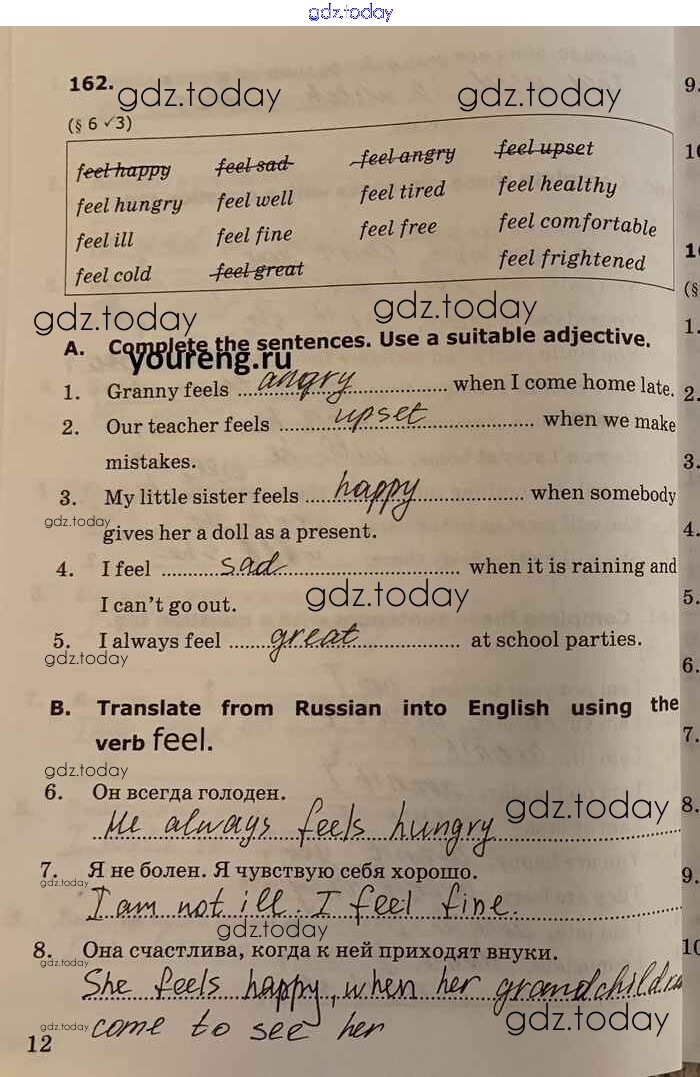 gdz.today
162.
gdz.today gdz.today
(§ 6 ✓3)
feel happy feel sad feel angry feel upset
feel hungry feel well feel tired feel healthy
feel ill feel fine feel free feel comfortable
feel cold feel great feel frightened
gdz.today gdz.today
A. Complete the sentences. Use a suitable adjective.
youreng.ru
1. Granny feels angry when I come home late.
2. Our teacher feels upset when we make
mistakes.
3. My little sister feels happy when somebody
gdz.today
gives her a doll as a present.
4. I feel sad when it is raining and
I can't go out.
gdz.today
5. I always feel great at school parties.
gdz.today
B. Translate from Russian into English using the
verb feel.
gdz.today
6. Он всегда голоден.
gdz.today
He always feels hungry
7. Я не болен. Я чувствую себя хорошо.
gdz.today
I am not ill. I feel fine.
gdz.today
8. Она счастлива, когда к ней приходят внуки.
gdz.today
She feels happy, when her grandchildren
come to see her
gdz.today gdz.today
12
9.
1.
2.
3.
4.
5.
6.
7.
8.
9.
10